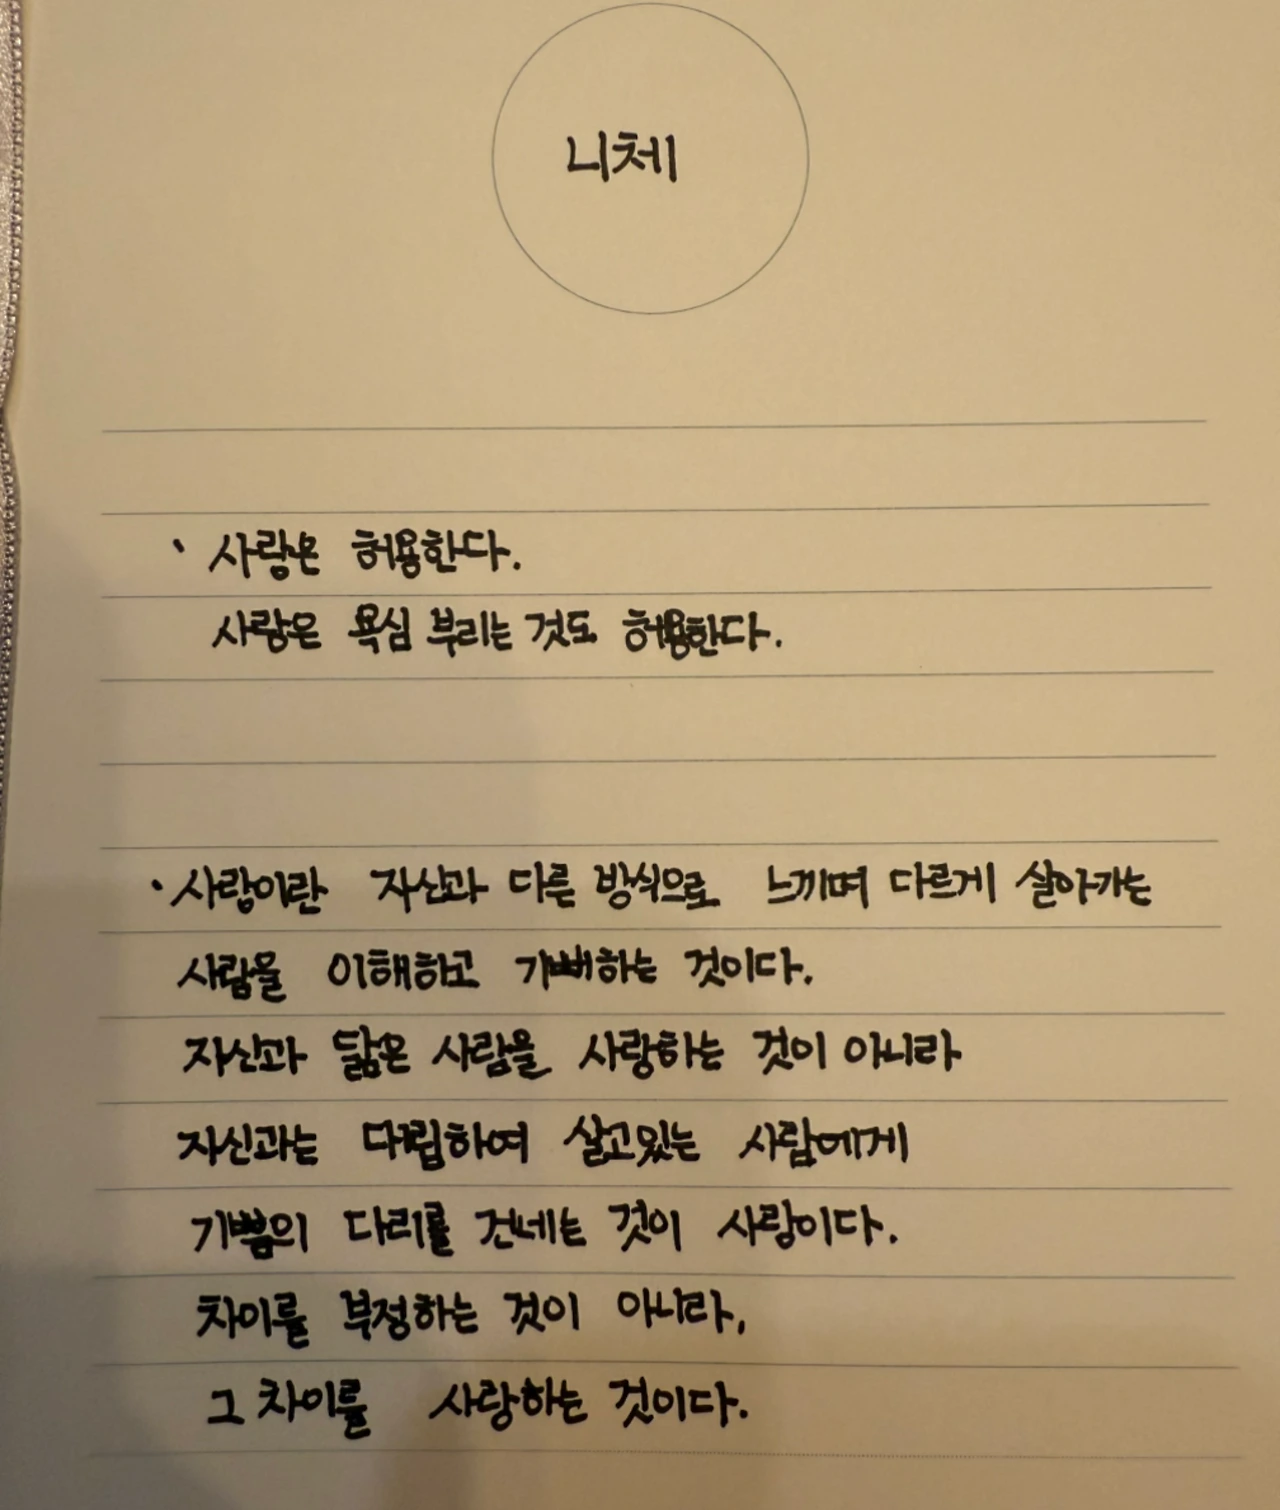 니체
· 사랑은 허용한다.
사랑은 욕심 부리는 것도 허용한다.
· 사랑이란 자신과 다른 방식으로 느끼며 다르게 살아가는
사람을 이해하고 기뻐하는 것이다.
자신과 닮은 사람을 사랑하는 것이 아니라
자신과는 대립하여 살고있는 사람에게
기쁨의 다리를 건네는 것이 사랑이다.
차이를 부정하는 것이 아니라,
그 차이를 사랑하는 것이다.